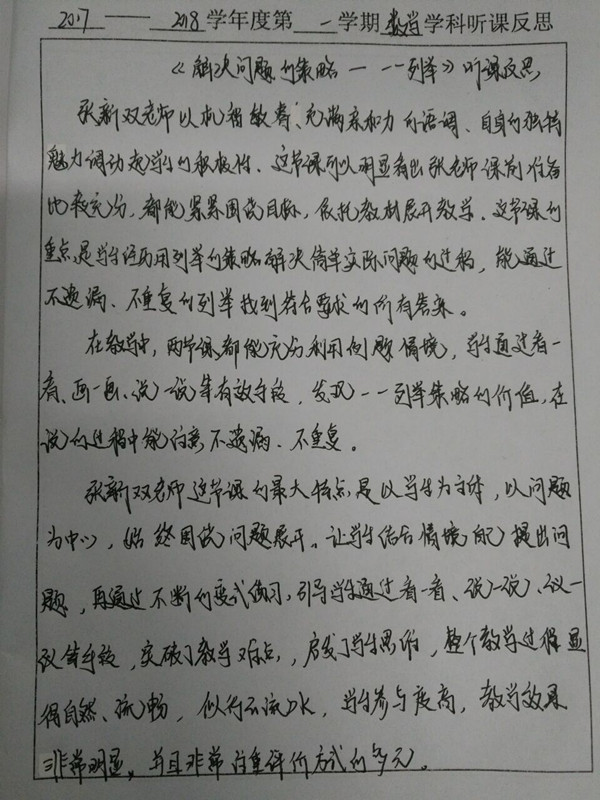 2017——2018学年度第一学期数学学科听课反思
《解决问题的策略——一一列举》听课反思
张新双老师以机智教态、充满亲和力的语调、自身的独特
魅力调动起学生的积极性。这节课可以明显看出张老师课前准备
比较充分，都能紧紧围绕目标，依托教材展开教学。这节课的
重点是学生经历用列举的策略解决简单实际问题的过程，能通过
不遗漏、不重复的列举找到符合要求的所有答案。
在教学中，两节课都能充分利用例题情境，学生通过看一
看、画一画、说一说等有效手段，发现一一列举策略的价值，在
说的过程中能注意不遗漏、不重复。
张新双老师这节课的最大特点是以学生为主体，以问题
为中心，始终围绕问题展开。让学生结合情境自己提出问
题，再通过不断的变式练习，引导学生通过看一看、说一说、议一
议等手段，突破了教学难点，启发了学生思维，整个教学过程显
得自然、流畅，似行云流水，学生参与度高，教学效果
非常明显，并且非常注重评价方式的多元。